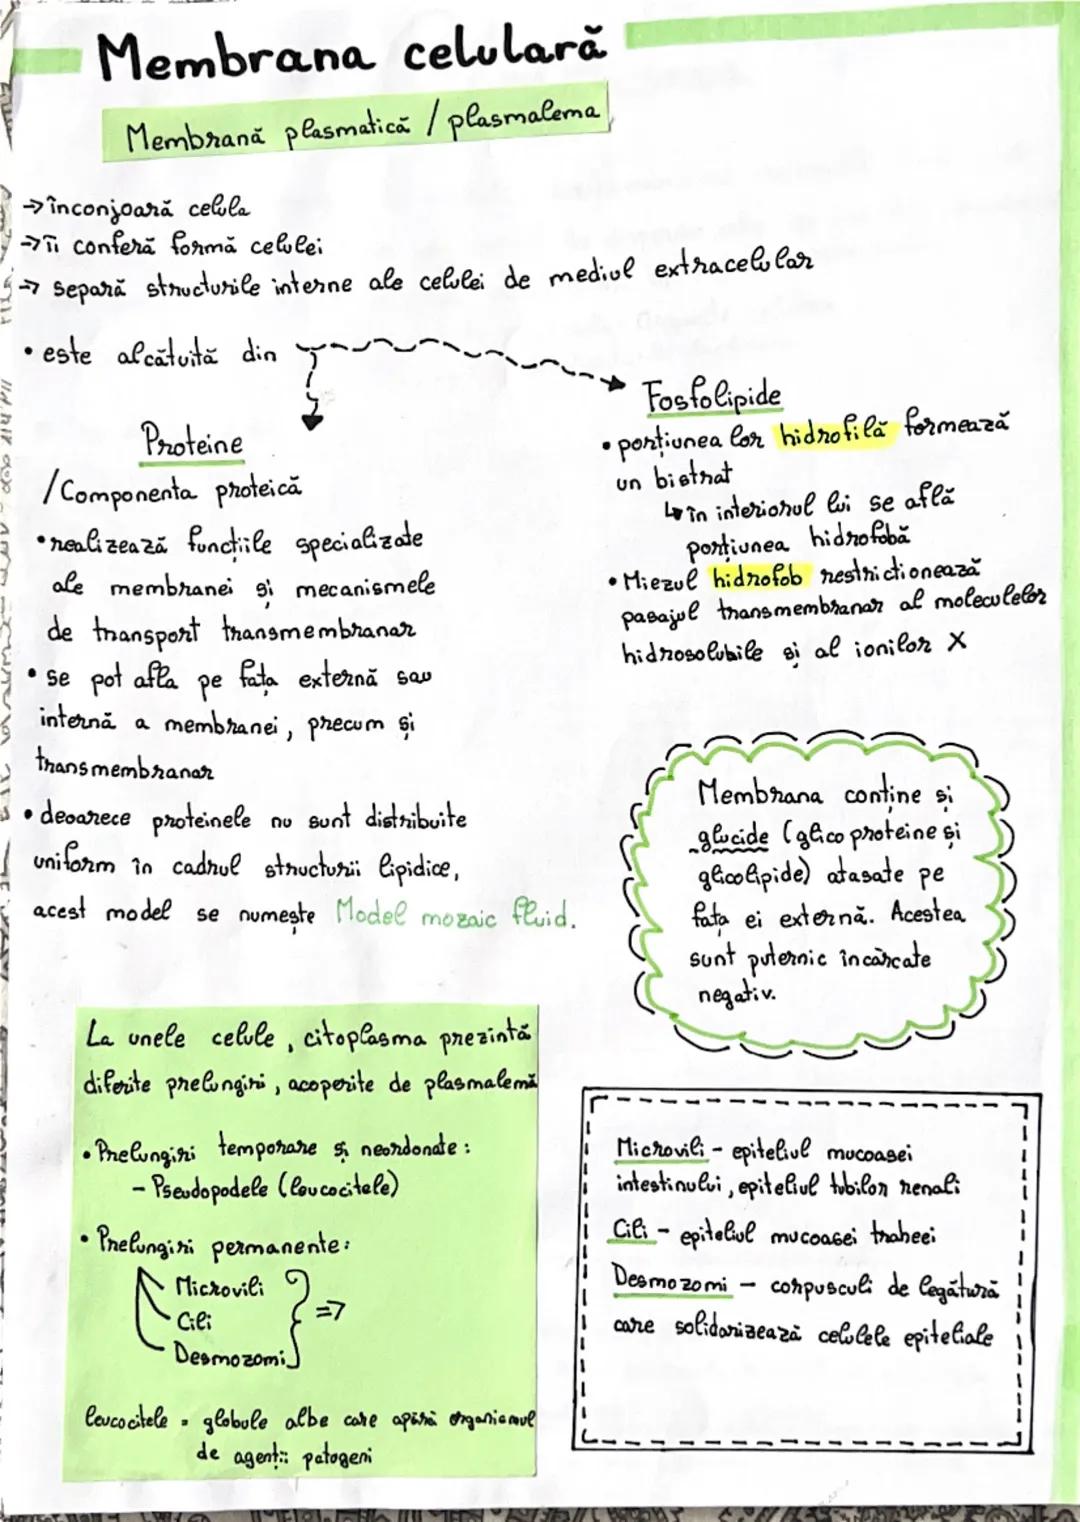 Membrana celulară
Membrană plasmatică / plasmalema
→ înconjoară celula
→ îi conferă formă celulei
→ separă structurile interne ale celulei de mediul extracelular
• este alcătuită din
Proteine
/Componenta proteică
• realizează funcțiile specializate
ale membranei și mecanismele
de transport transmembranar
• se pot afla pe fața externă sau
internă a membranei, precum și
transmembranar
• deoarece proteinele nu sunt distribuite
uniform în cadrul structurii lipidice,
acest model se numește Model mozaic fluid.
Fosfolipide
• porțiunea lor hidrofilă formează
un bistrat
↳ în interiorul lui se află
porțiunea hidrofobă
• Miezul hidrofob restricționează
pasajul transmembranar al moleculelor
hidrosolubile și al ionilor X
Membrana conține și
glucide (glicoproteine și
glicolipide) atașate pe
fața ei externă. Acestea
sunt puternic încărcate
negativ.
La unele celule, citoplasma prezintă
diferite prelungiri, acoperite de plasmalemă
• Prelungiri temporare și neordonate:
- Pseudopodele (leucocitele)
• Prelungiri permanente:
Microvili
Cili
Desmozomi
=>
leucocitele = globule albe care apără organismul
de agenții patogeni
Microvili - epiteliul mucoasei
intestinului, epiteliul tubilor renali
Cili - epiteliul mucoasei traheei
Desmozomi - corpusculi de legătură
care solidarizează celulele epiteliale